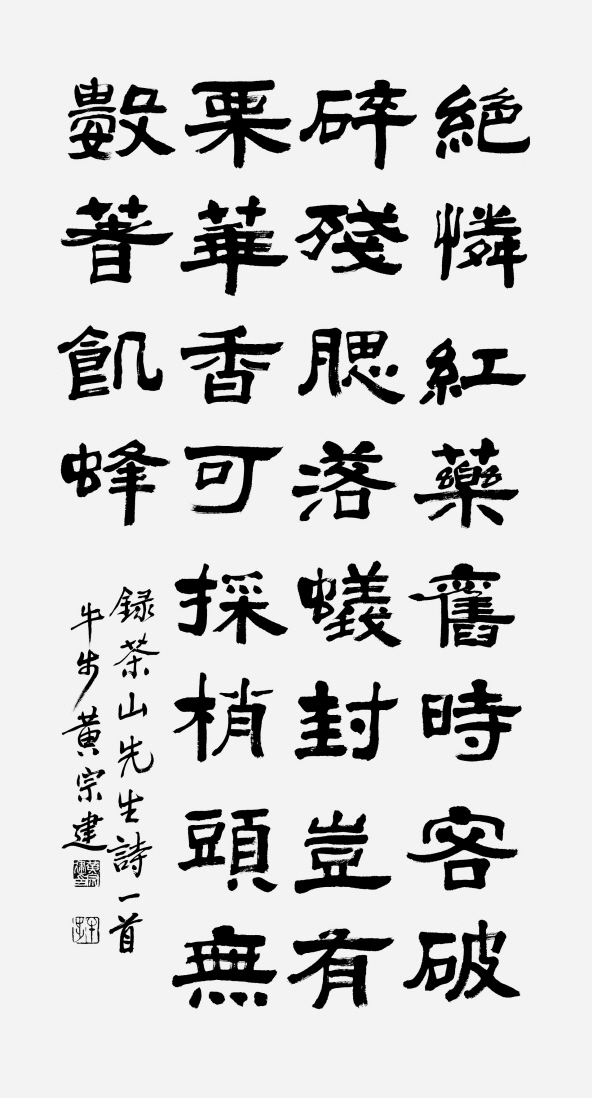 絶憐紅藥舊時容破
碎殘腮落蟻封豈有
栗華香可採梢頭無
數著飢蜂
録茶山先生詩一首
牛步黃宗建